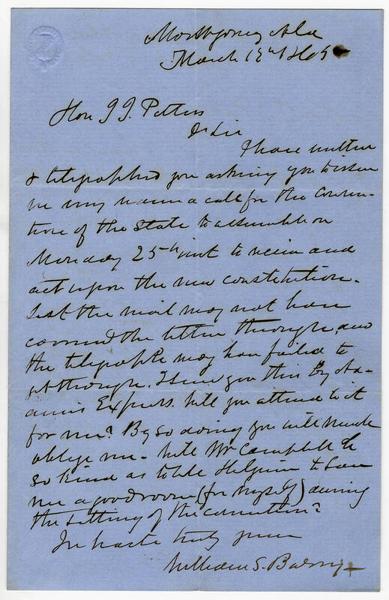 Montgomery Ala
March 12th 1861
Hon J. J. Pettus
Dr Sir
I have written
& telegraphed you asking you to issue
in my name a call for the Conven-
tion of the State to assemble on
Monday 25th inst to receive and
act upon the new constitution.
Lest the mail may not have
carried the letter through, and
the telegraph may have failed to
get through. I send you this by Ad-
ams Express. Will you attend to it
for me? By so doing you will much
oblige me. Will Mr Campbell be
so kind as to tell Hilzeim to save
me a good room (for myself) during
the sitting of the convention?
In haste truly yours
William S. Barry